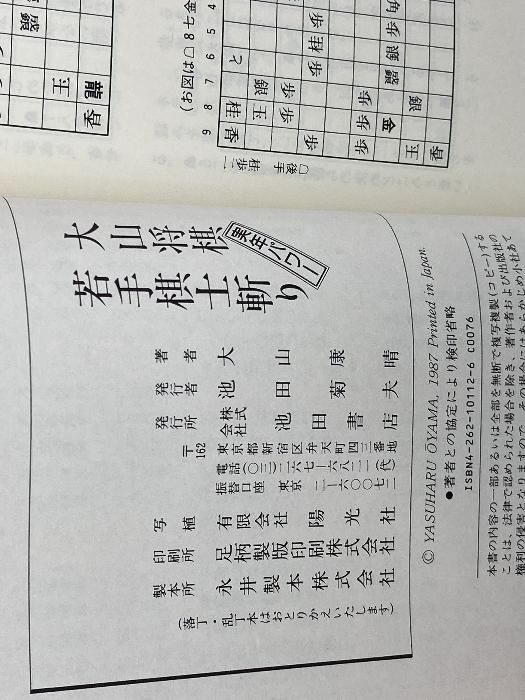 (お図は▢8七金
大山将棋
実年パワー
若手棋士斬り
著者 大山康晴
発行者 池田菊夫
発行所 株式会社 池田書店
〒162 東京都新宿区弁天町四三番地
電話(〇三)二六七―六八二一(代)
振替口座 東京 二―一六〇〇七二
写植 有限会社 陽光社
印刷所 足柄製版印刷株式会社
製本所 永井製本株式会社
(落丁・乱丁本はおとりかえいたします)
© YASUHARU ŌYAMA, 1987 Printed in Japan
●著者との協定により検印省略
ISBN4-262-10112-6 C0076
本書の内容の一部あるいは全部を無断で複写複製(コピー)する
ことは、法律で認められた場合を除き、著作者および出版社の
権利の侵害となりますので、その場合にはあらかじめ小社あて